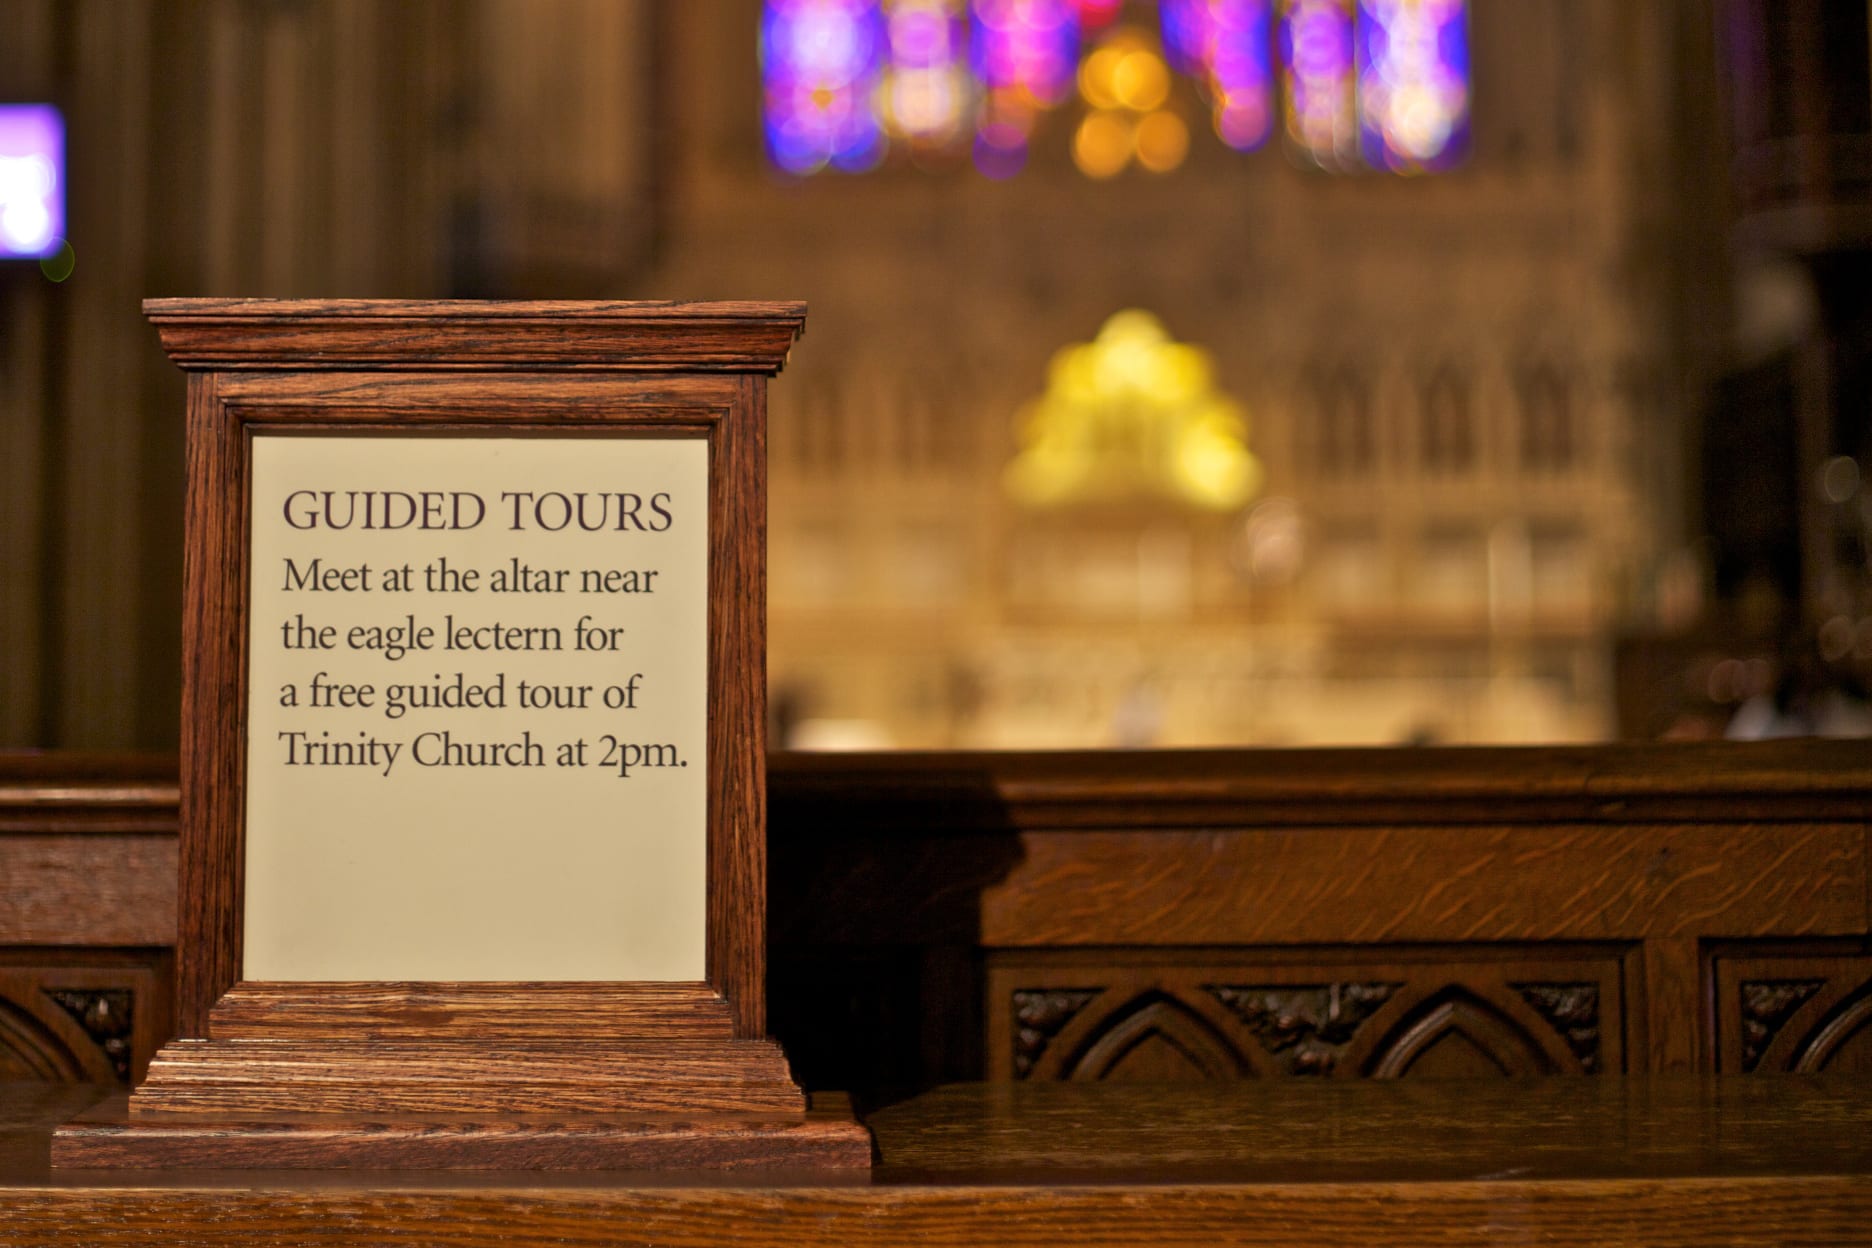 GUIDED TOURS
Meet at the altar near
the eagle lectern for
a free guided tour of
Trinity Church at 2pm.